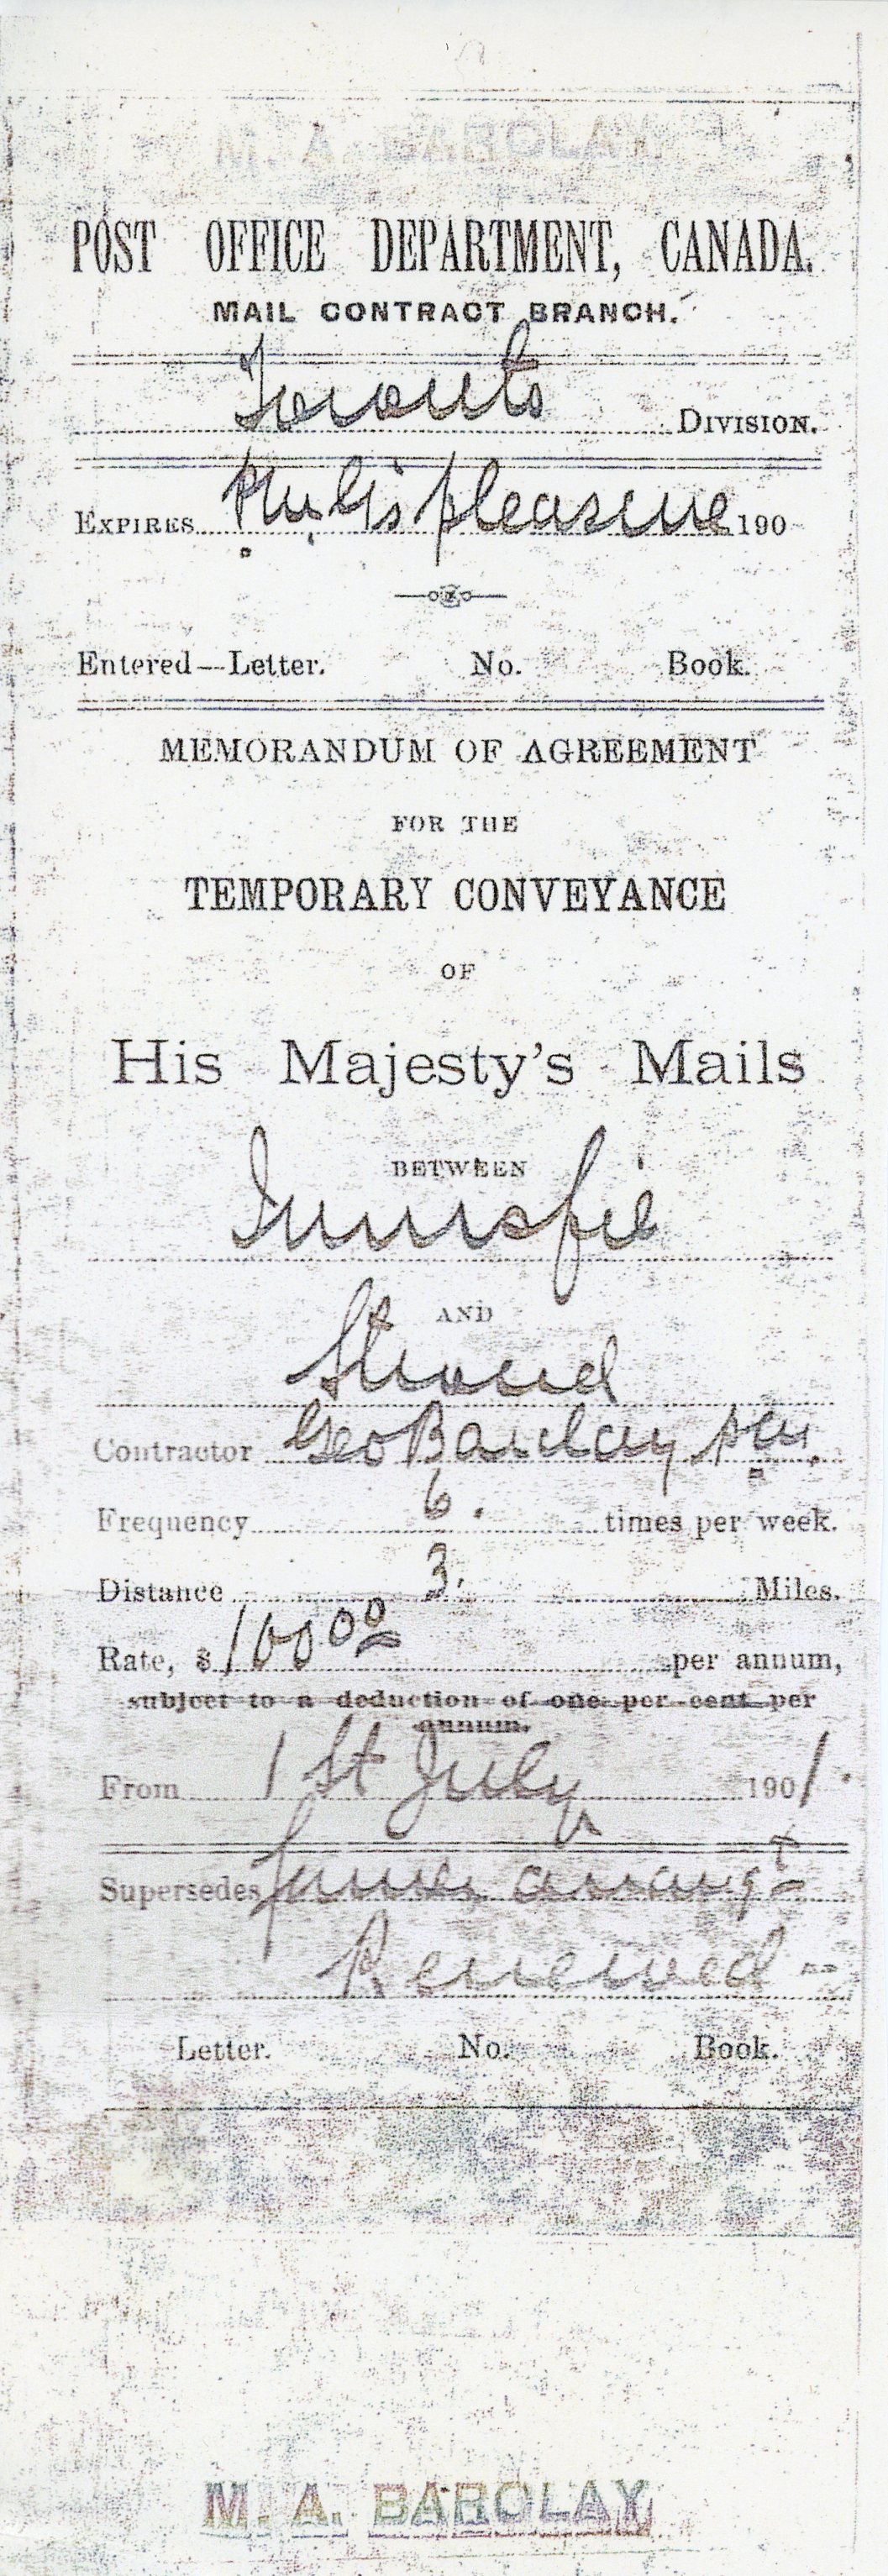 M. A. BARCLAY
POST OFFICE DEPARTMENT, CANADA.
MAIL CONTRACT BRANCH.
Toronto DIVISION.
EXPIRES P.M.G's pleasure 190
Entered—Letter. No. Book.
MEMORANDUM OF AGREEMENT
FOR THE
TEMPORARY CONVEYANCE
OF
His Majesty's Mails
BETWEEN
Innisfil
AND
Stroud
Contractor Geo Barclay P.M.
Frequency 6. times per week.
Distance 3. Miles.
Rate, $ 100 00 per annum,
subject to a deduction of one per cent per
annum.
From 1st July 1901.
Supersedes former arrangt
Renewed
Letter. No. Book.
M. A. BARCLAY